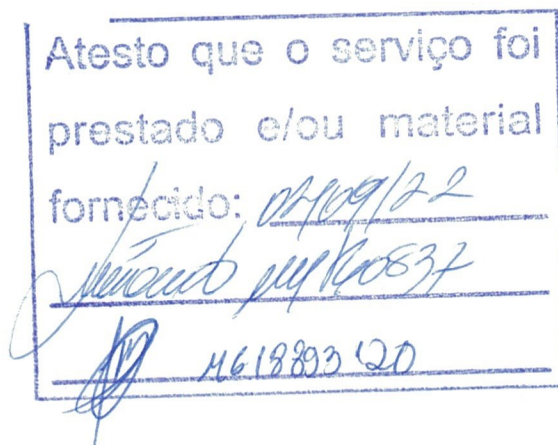 Atesto que o serviço foi
prestado e/ou material
fornecido: 02/09/22
MG18893120